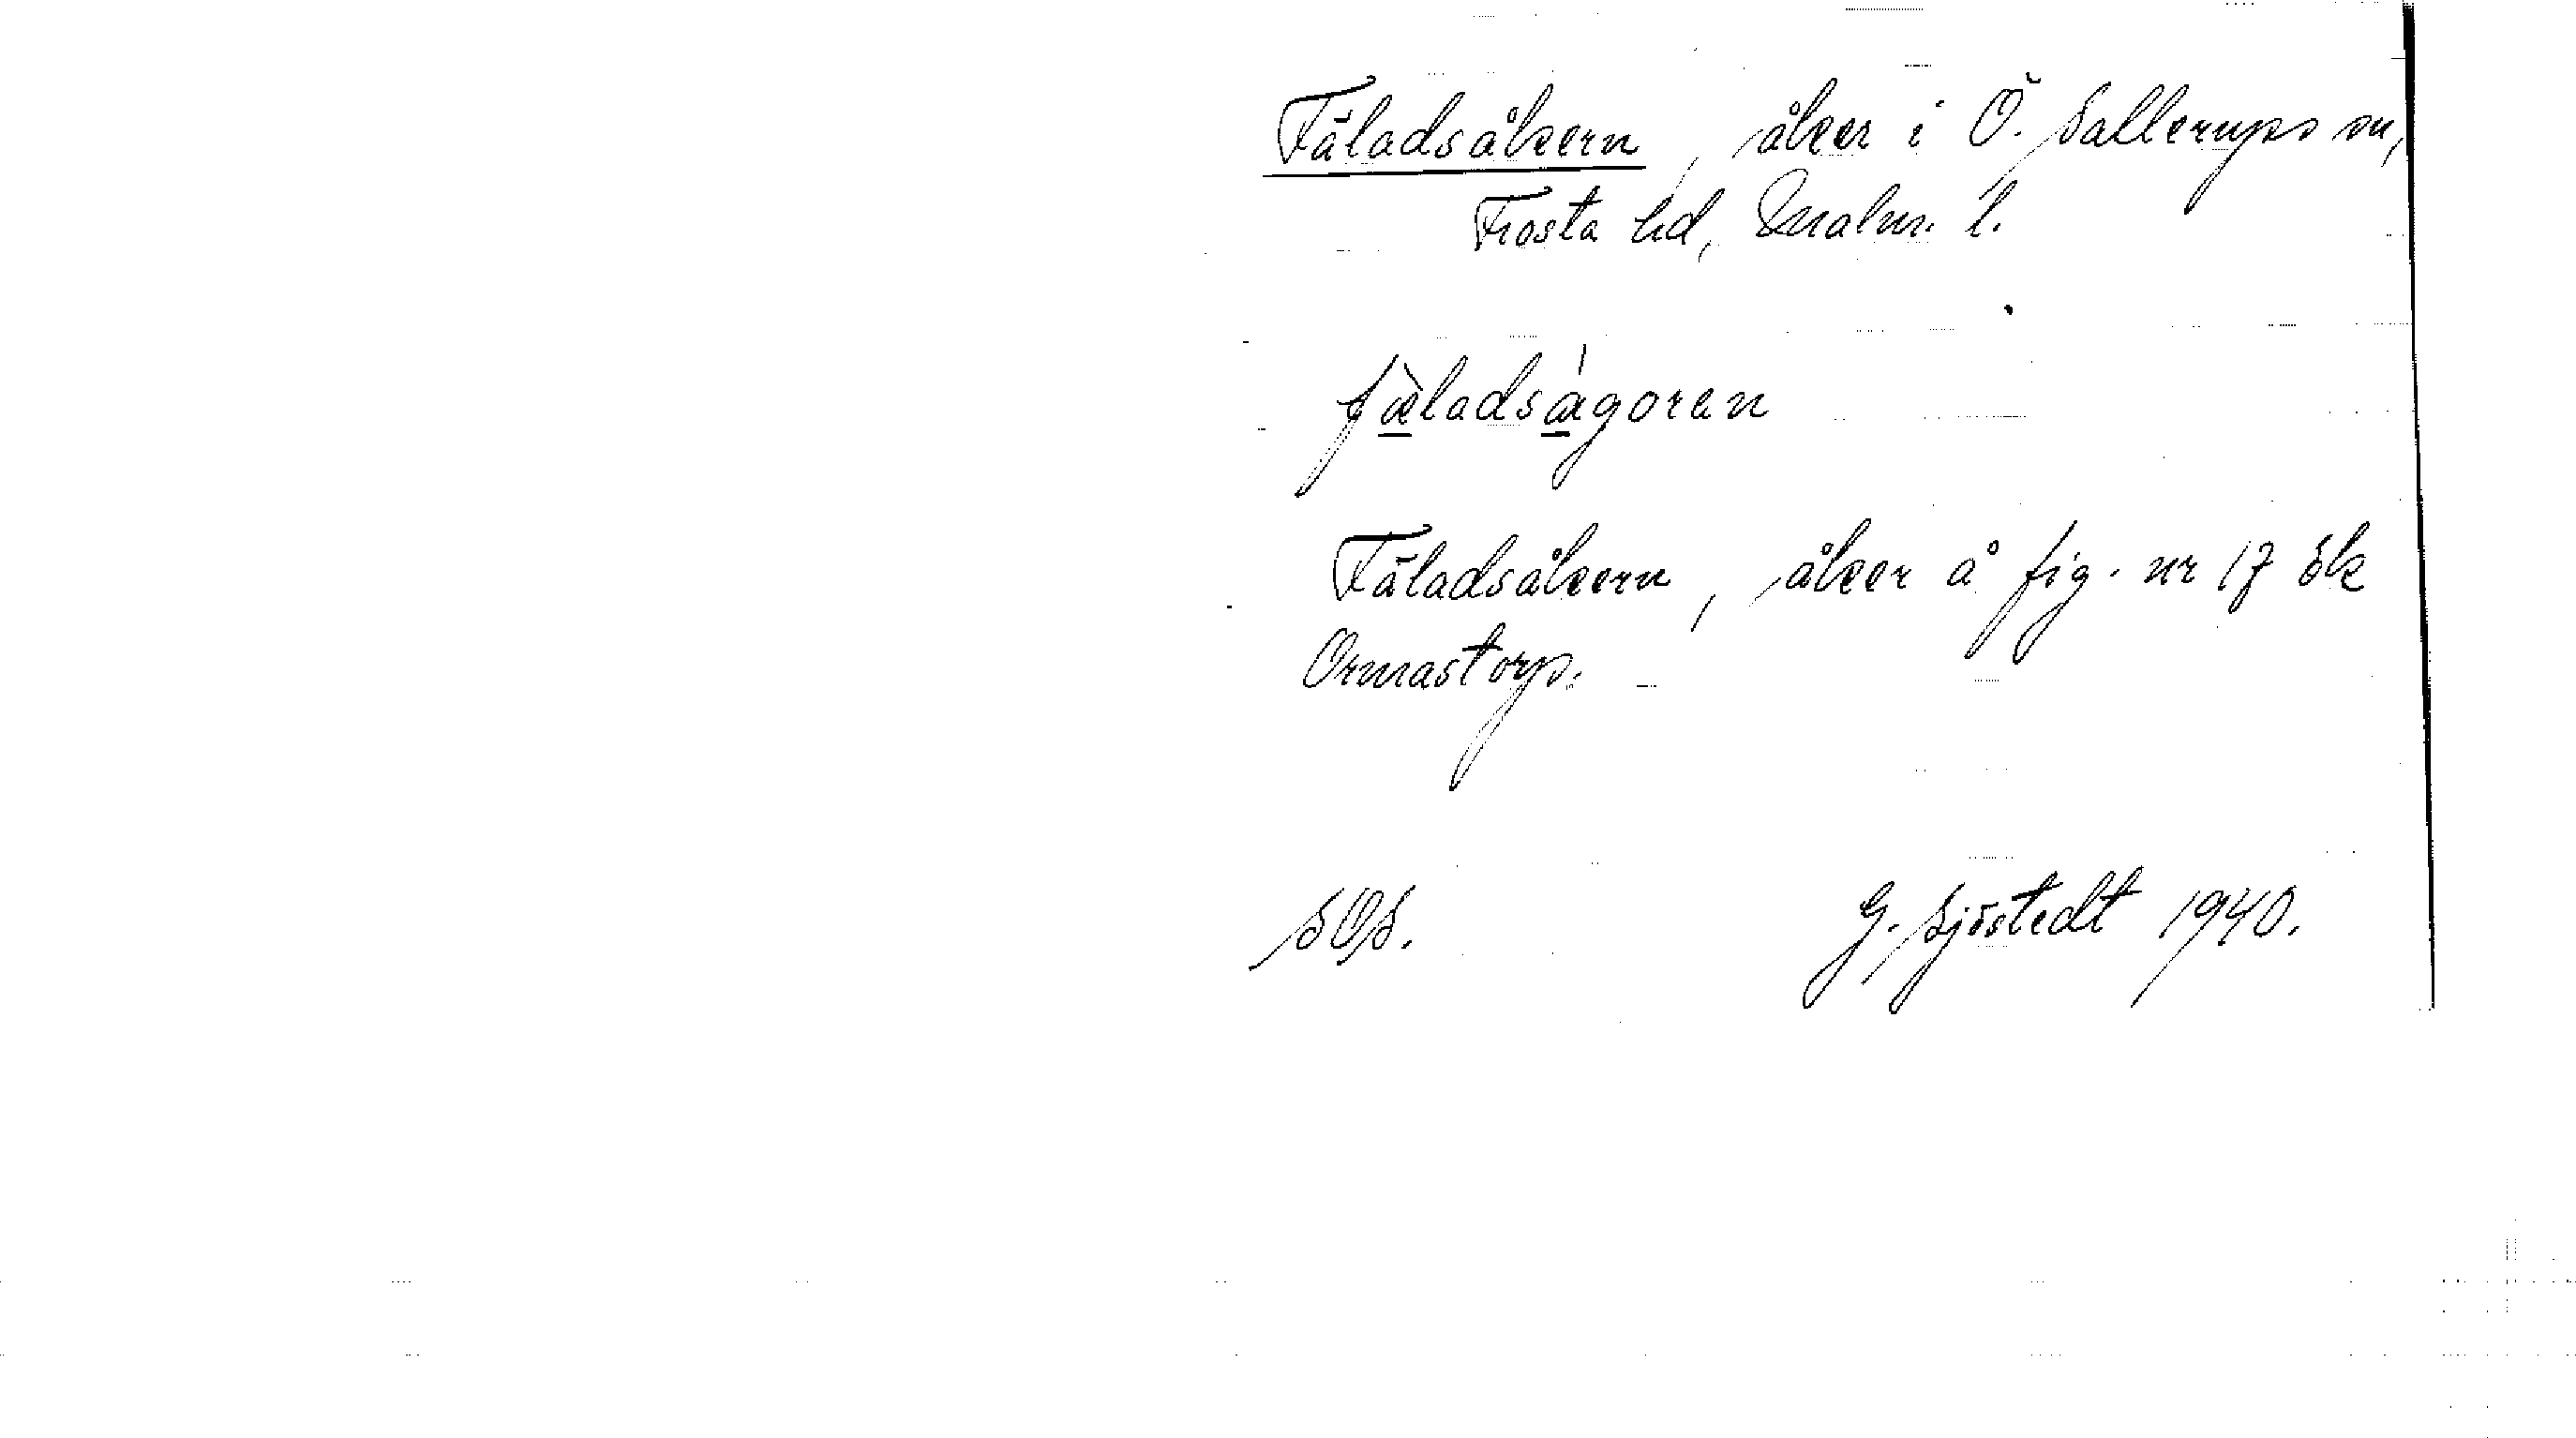 Fäladsåkern, åker i Ö. Sallerups sn,
Frosta hd, Malm. l.
fæ̀ladságoren
Fäladsåkern, åker å fig. nr 17 ök
Ormastorp.
SOS.
G. Sjöstedt 1940.